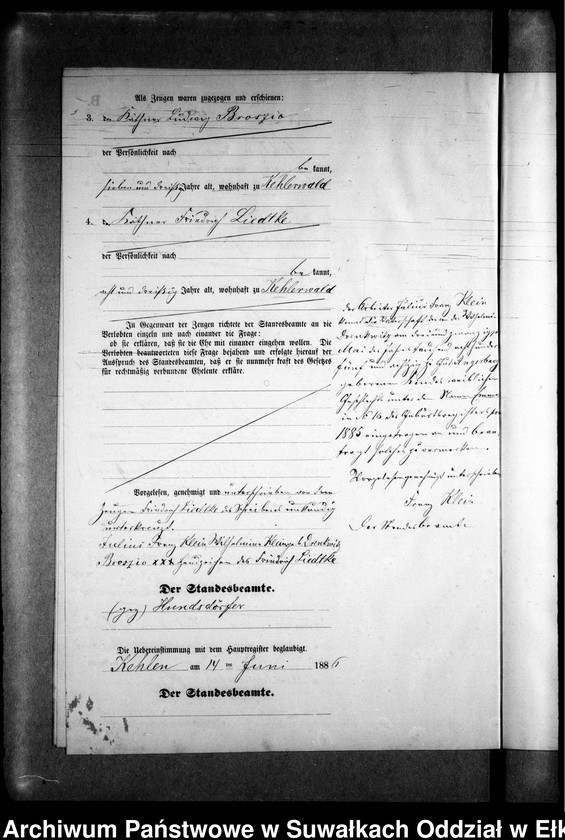 Als Zeugen waren zugezogen und erschienen:
3. der Käthner Ludwig Broszio
der Persönlichkeit nach
be kannt,
sieben und dreißig Jahre alt, wohnhaft zu Kehlerwald
4. der Käthner Friedrich Liedtke
der Persönlichkeit nach
be kannt,
acht und dreißig Jahre alt, wohnhaft zu Kehlerwald
In Gegenwart der Zeugen richtete der Standesbeamte an die
Verlobten einzeln und nach einander die Frage:
ob sie erklären, daß sie die Ehe mit einander eingehen wollen. Die
Verlobten beantworteten diese Frage bejahend und erfolgte hierauf der
Ausspruch des Standesbeamten, daß er sie nunmehr kraft des Gesetzes
für rechtmäßig verbundene Eheleute erkläre.
Vorgelesen, genehmigt und unterschrieben von dem
Zeugen Friedrich Liedtke des Schreibens unkundig
unterkreuzt.
Julius Franz Klein Wilhelmine Klein geb Drenkwitz
Broszio xxx Handzeichen des Friedrich Liedtke
Der Standesbeamte.
(gez) Hundsdörfer
Die Uebereinstimmung mit dem Hauptregister beglaubigt.
Kehlen am 14 ten Juni 1886
Der Standesbeamte.
der Arbeiter Julius Franz Klein
die Vaterschaft der Wilhelmine
Drenkwitz am drei und zwanzigsten
Mai des Jahres tausend acht hundert
fünf und achtzig zu Angerburg
geborenen Kindes weiblichen
Geschlechts unter dem Namen Emma
in No 16 des Geburtsregisters pro
1885 eingetragen an und bean-
tragt solches zu vermerken.
Vorgelesen genehmigt unterschrieben
Franz Klein
Der Standesbeamte
Archiwum Państwowe w Suwałkach Oddział w Ełk